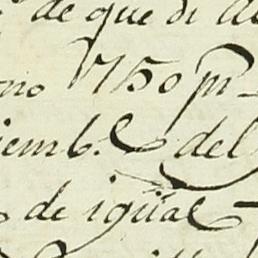 de que di
no 1750 pr
iemb.e del
de igüal